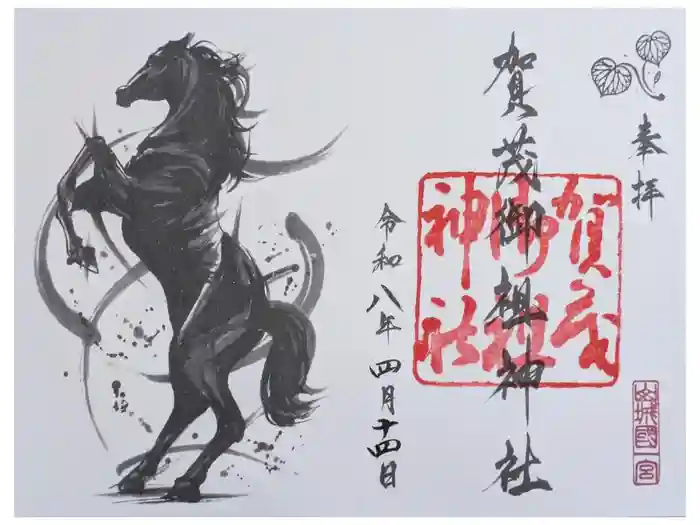 奉拝
賀茂御祖神社
賀茂
御祖
神社
令和八年四月十四日
山城國
一宮